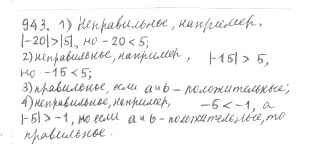 943. 1) Неправильное, например.
|-20|>|5|, но -20<5;
2) неправильное, например, |-15|>5,
но -15<5;
3) правильное, если a и b - положительные;
4) неправильное, например, -5<-1, а
|-5|>-1, но если a и b - положительные, то
правильное.